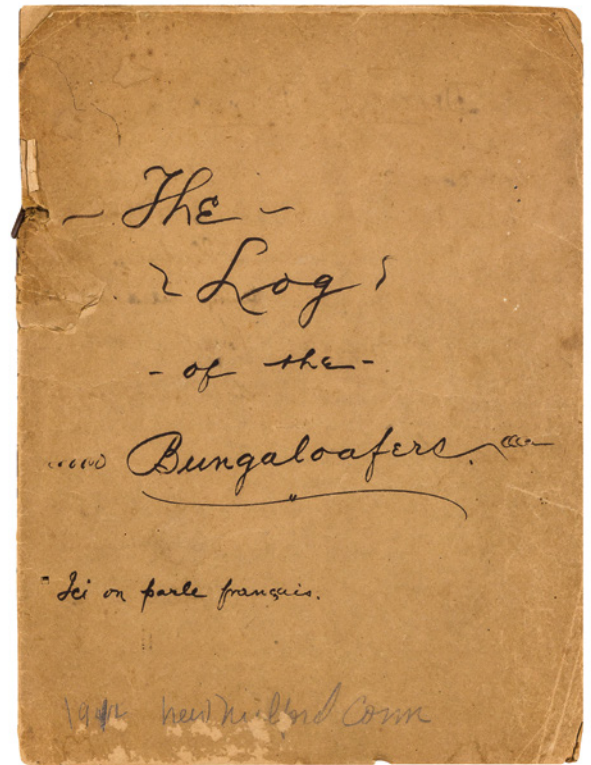 - The -
Log
- of the -
Bungaloafers.
" Ici on parle français.
New Milford Conn